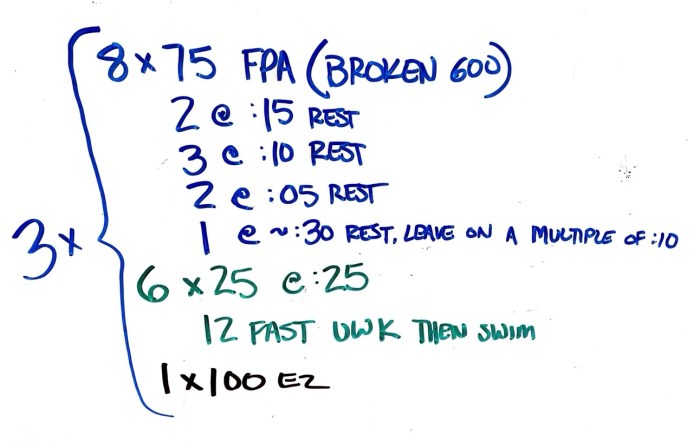 3x
8 x 75 FPA (BROKEN 600)
2 @ :15 REST
3 @ :10 REST
2 @ :05 REST
1 @ ~:30 REST, LEAVE ON A MULTIPLE OF :10
6 x 25 @ :25
12 FAST UWK THEN SWIM
1 x 100 EZ